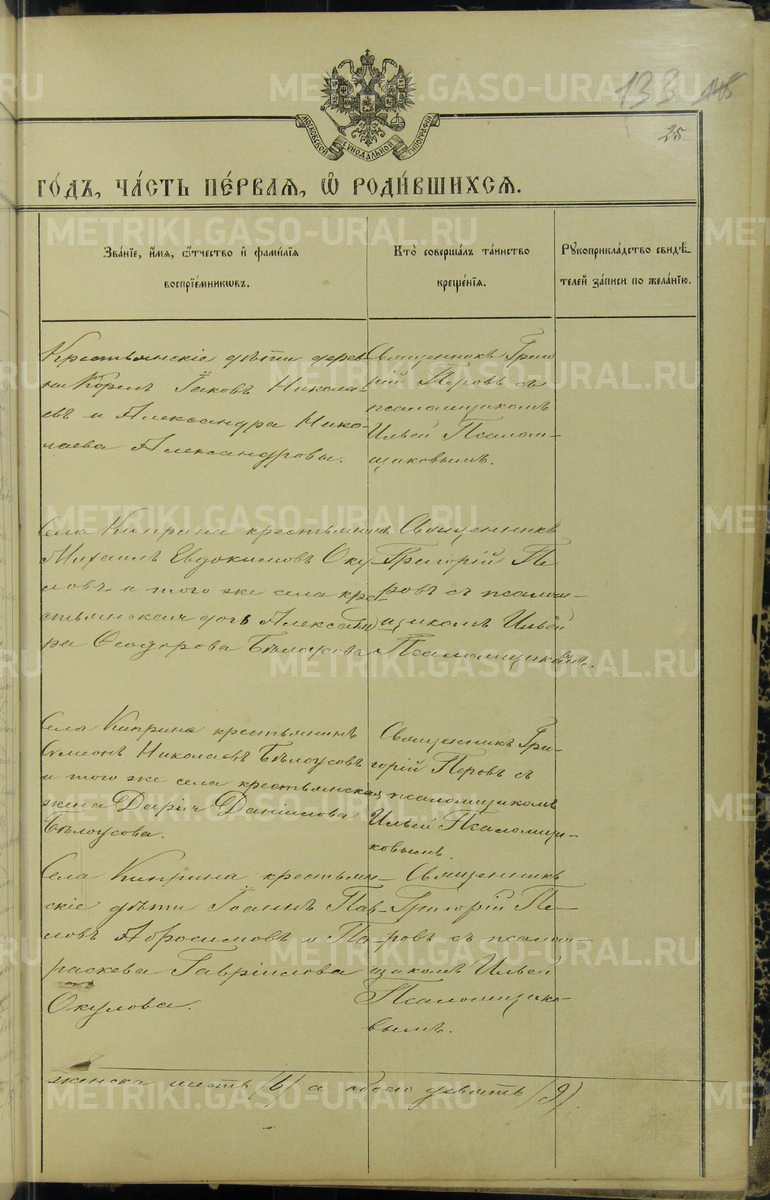 METRIKI.GASO-URAL.RU
133
МОСКОВСКОЙ СѴНОДАЛЬНОЙ ТИПОГРАФІИ
25
ГО́ДЪ, ЧА́СТЬ ПЕ́РВАЯ, Ѽ РОДИ́ВШИХСЯ.
Зва́нїе, и҆́мя, ѻ҆́тчество и҆ фами́лїя воспрїе́мникѡвъ.
Кто̀ соверша́лъ та́инство креще́нїя.
Рꙋкоприкла́дство свидѣ́телей за́писи по жела́нїю.
Крестьянскіе дѣти дерев
ни Корелъ Іаковъ Никола-
евъ и Александра Нико-
лаева Александровы.
Священникъ Григо
рій Перовъ съ
псаломщикомъ
Ильей Псалом-
щиковымъ.
Села Киприна крестьянинъ
Михаилъ Евдокимовъ Оку
ловъ и того же села кре-
стьянская дочь Александ
ра Ѳеодорова Бѣлоусова
Священникъ
Григорій Пе
ровъ съ псалом-
щикомъ Ильей
Псаломщиковымъ.
Села Киприна крестьянинъ
Симеонъ Николаевъ Бѣлоусовъ
и того же села крестьянская
жена Дарія Даніилова
Бѣлоусова.
Священникъ Гри-
горій Перовъ съ
псаломщикомъ
Ильей Псаломщи-
ковымъ.
Села Киприна крестьян-
скіе дѣти Іоаннъ Пав-
ловъ Абросимовъ и Па-
раскева Гавріилова
Окулова.
Священникъ
Григорій Пе-
ровъ съ псалом-
щикомъ Ильей
Псаломщико-
вымъ.
женска шесть /6/ а обоего девять /9/